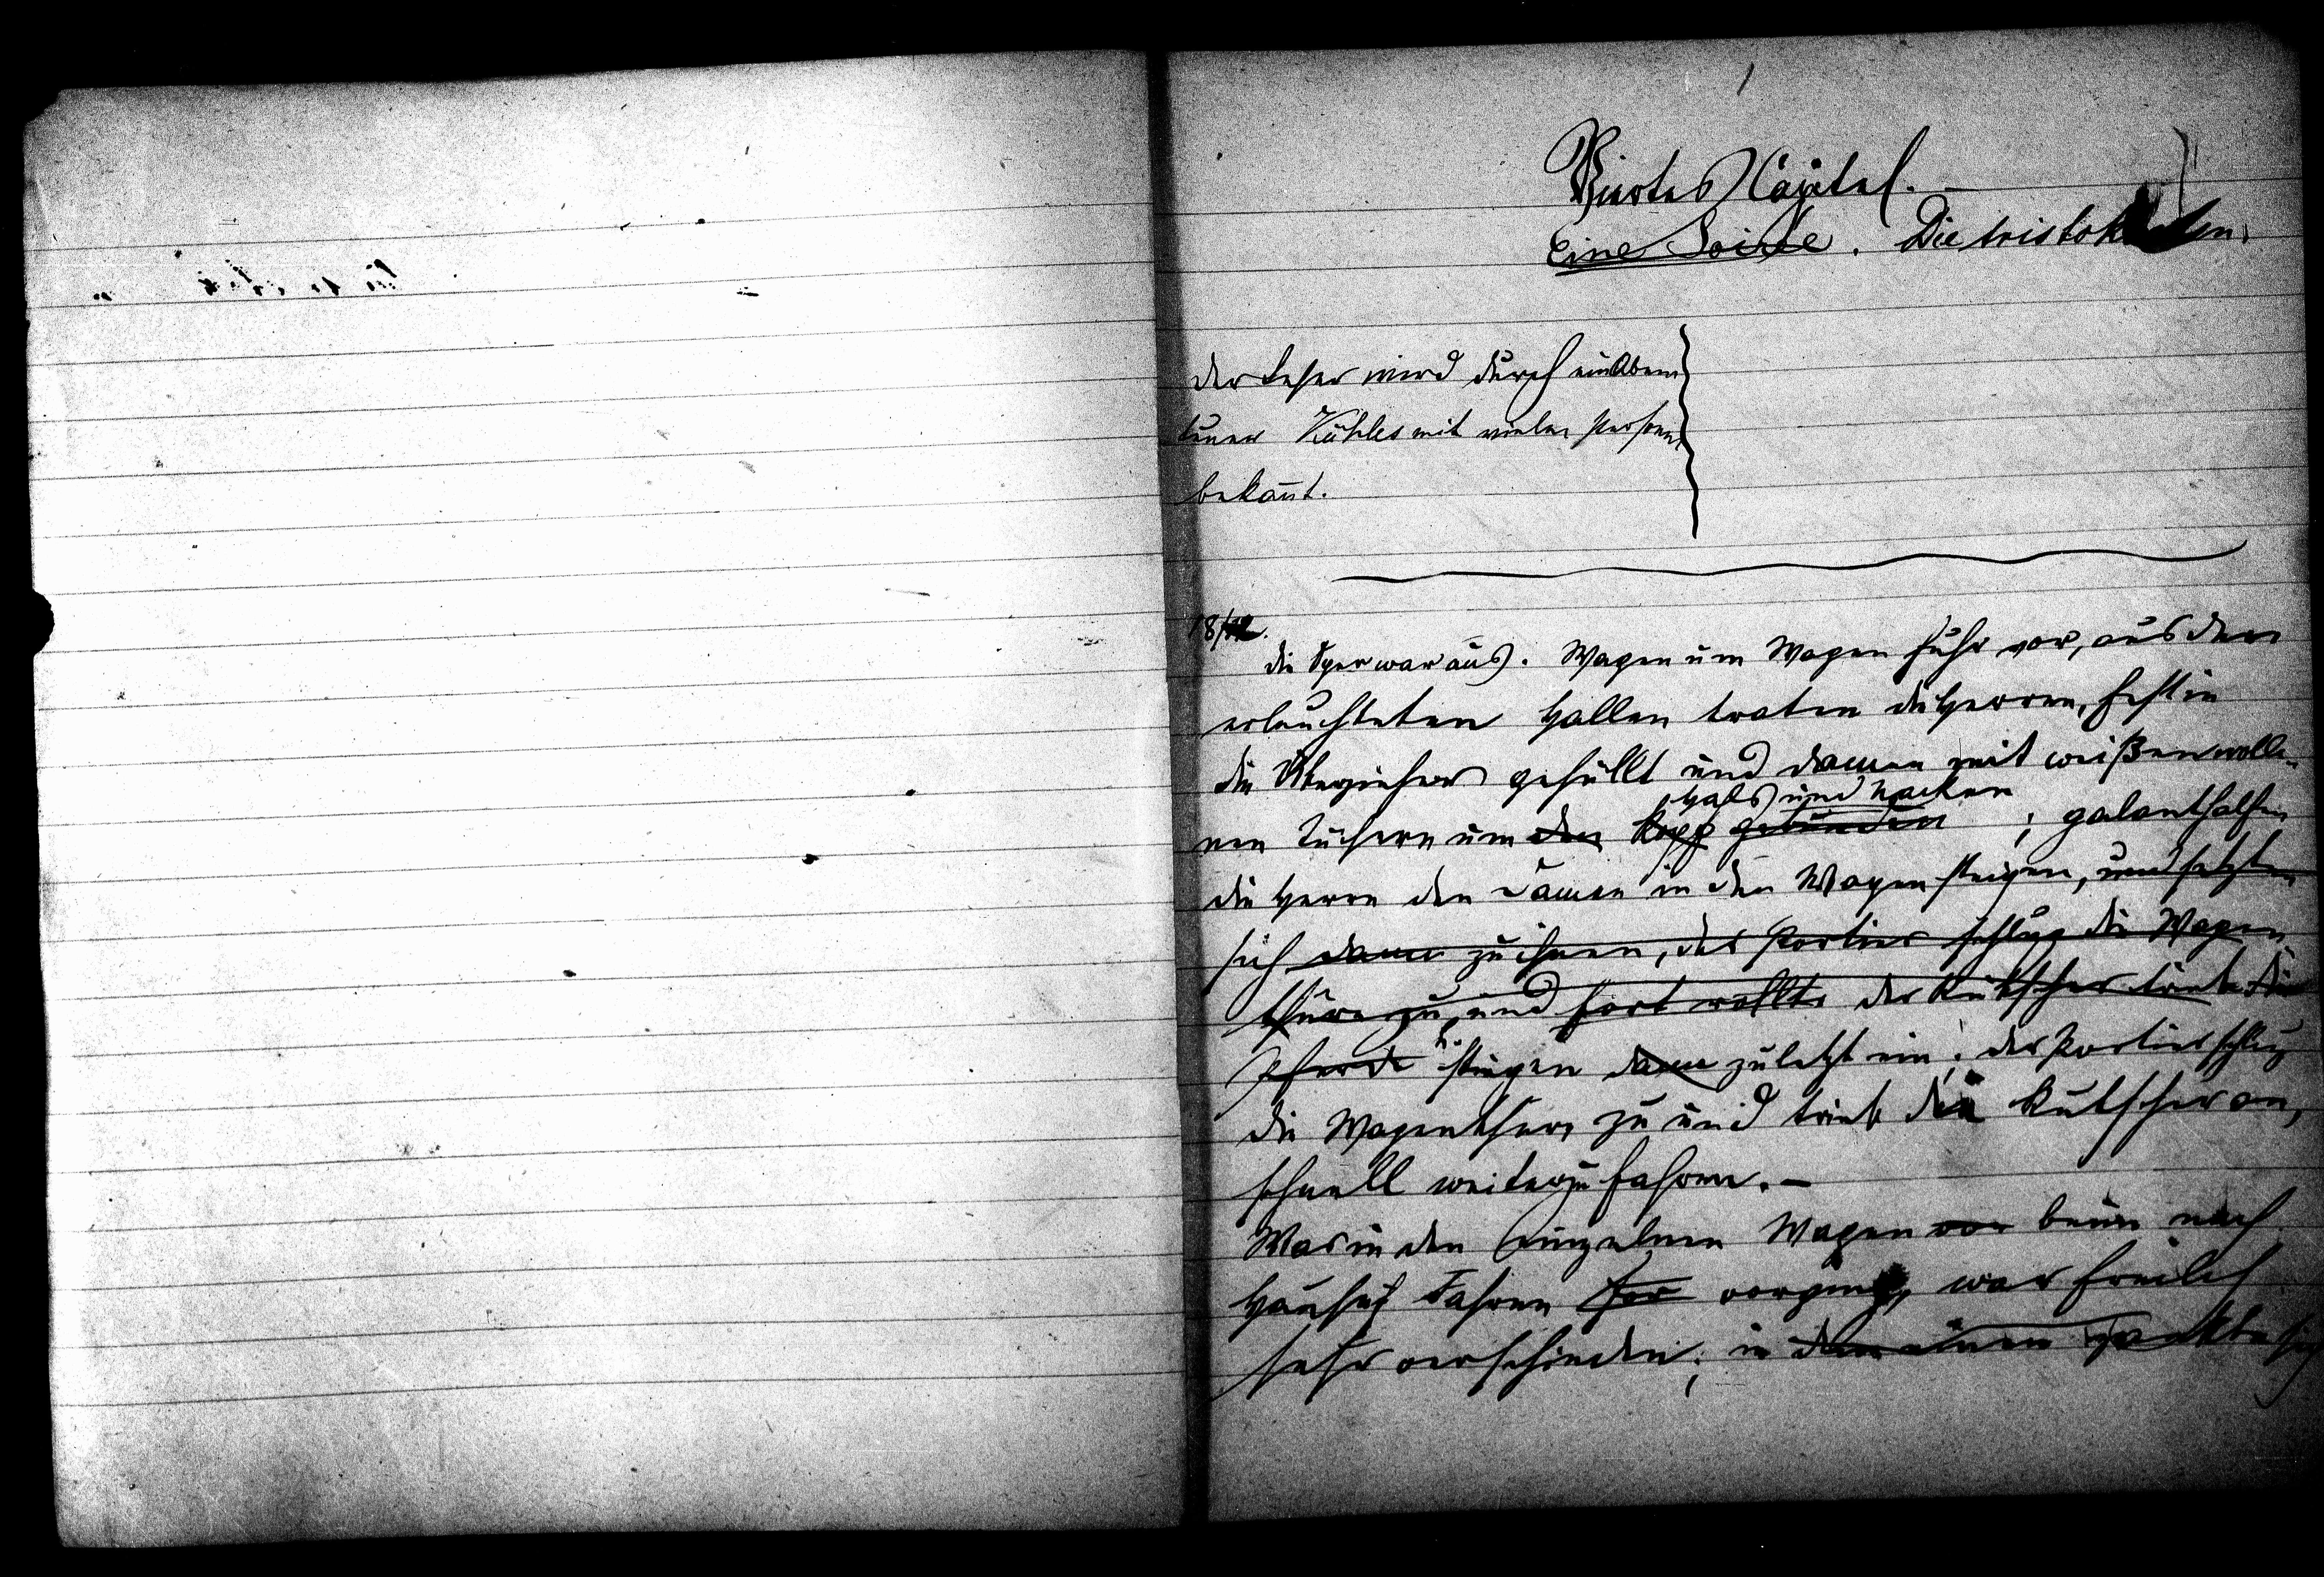 1
Viertes Capitel.
Eine Soirée. Die Aristokraten.
der Leser wird durch ein Aben
teuer Kühles mit vielen Personen
bekannt.
18/12.
die Oper war aus. Wagen um Wagen fuhr vor, aus den
erleuchteten Hallen traten die Herren, fest in
die Überzieher gehüllt und Damen mit weißen wolle-
Hals und Nacken
nen Tüchern um den Kopf gebunden ; galant halfen
die Herrn den Damen in den Wagen steigen, und setzten
sich dann zu ihnen, der Portier schlug die Wagen
thüre zu, und fort rollte der Kutscher trieb die
Pferde stiegen dann zuletzt ein; der Portier schlug
die Wagenthüre zu und trieb den Kutscher an,
schnell weiterzufahren. –
Was in den einzelnen Wagen vor beim nach
Hause Fahren vorging, war freilich
sehr verschieden; in dem einen